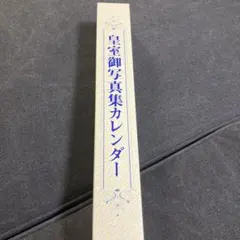 皇室御写真集カレンダー